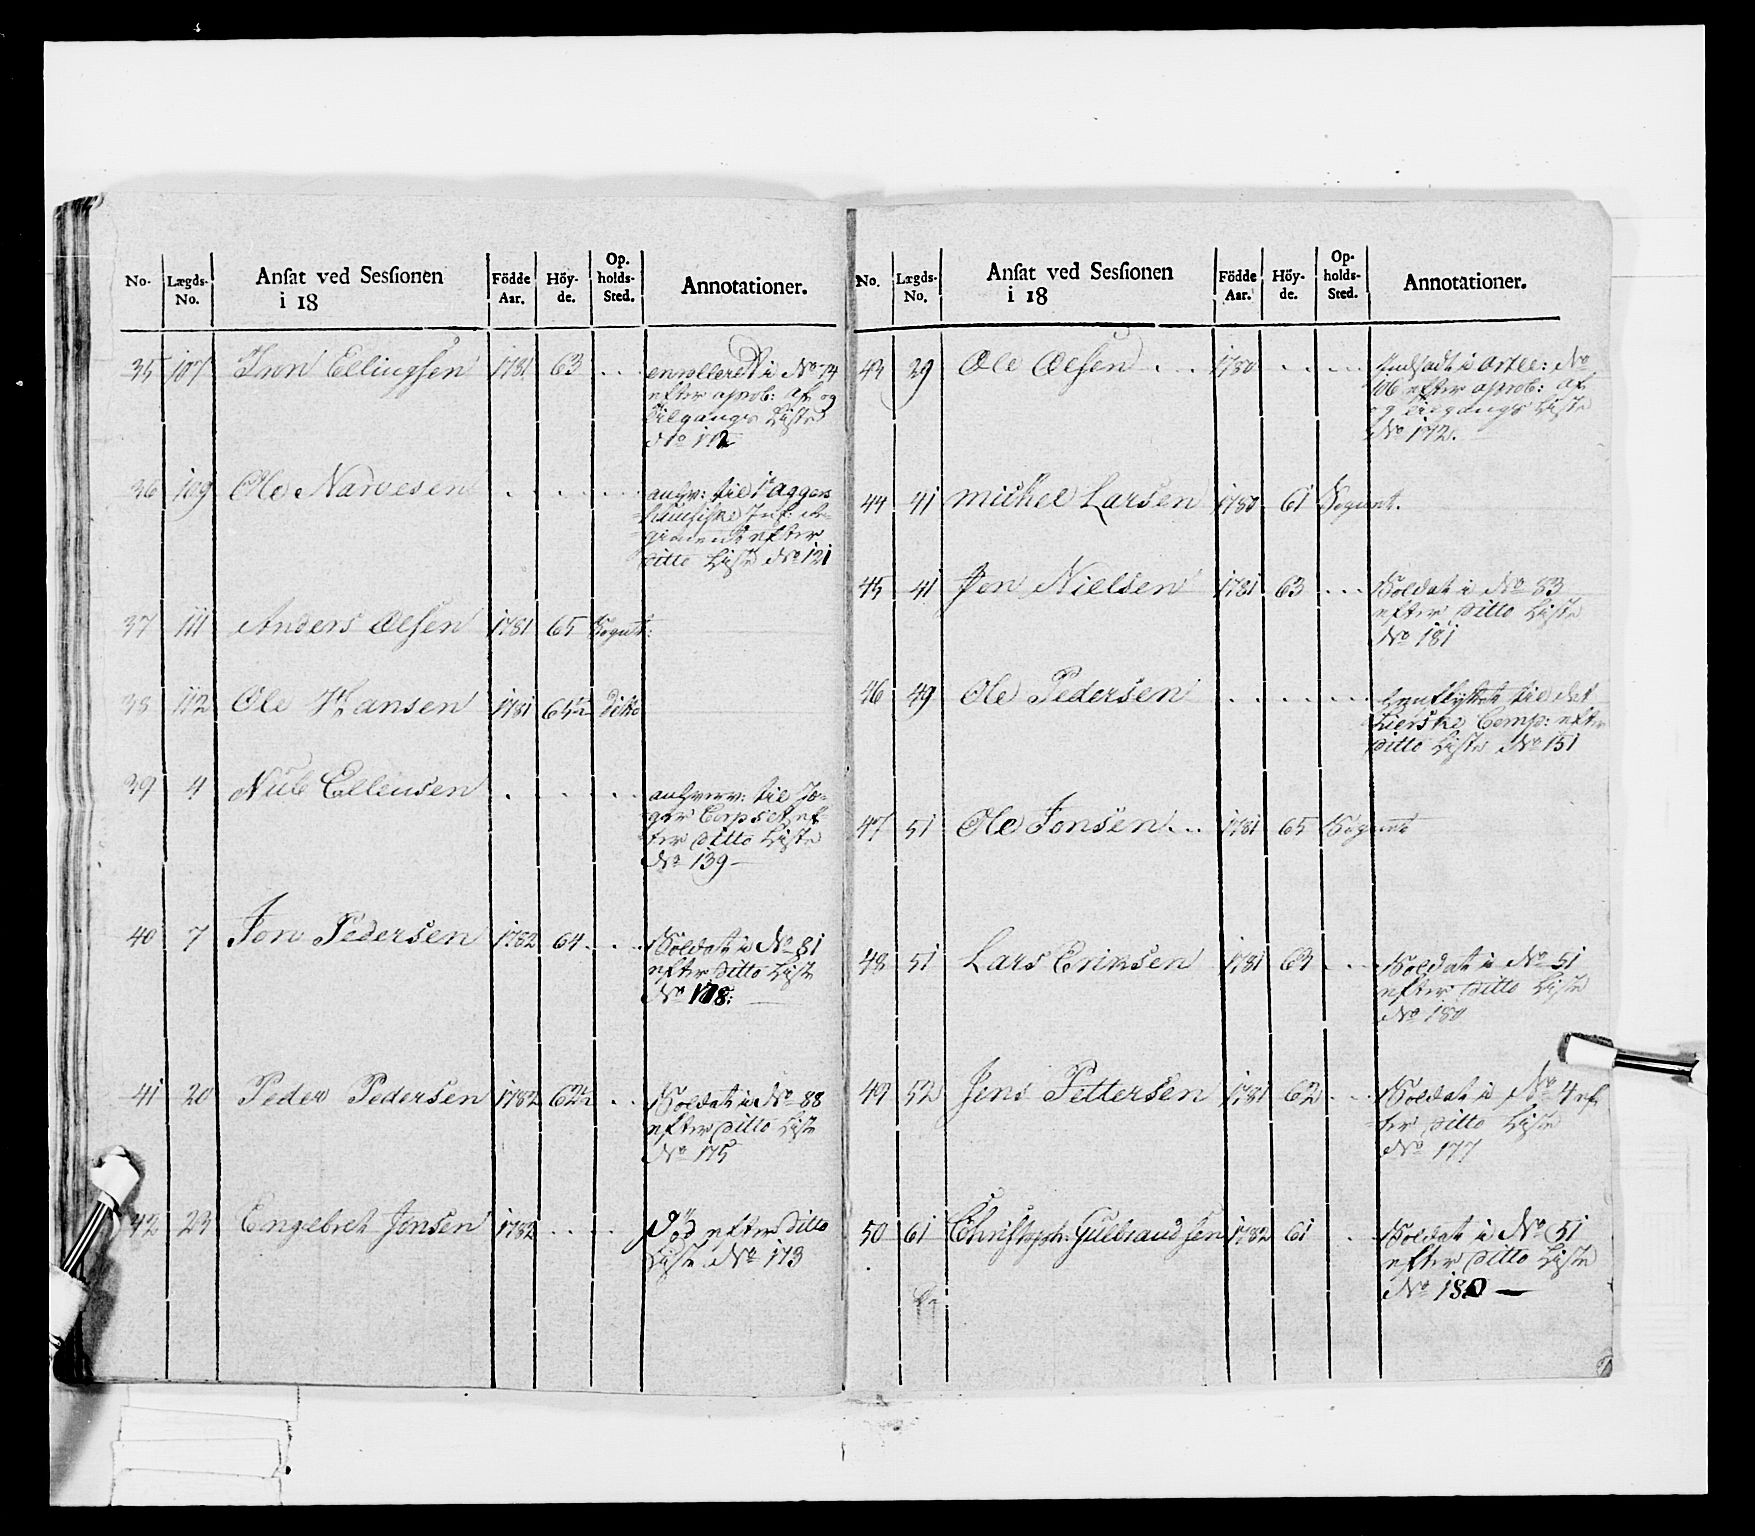 No. Lægds-No. Ansat ved Sessionen i 18 Födde Aar. Höy-de. Op-holds-Sted. Annotationer.
35 107 Iver Ellingsen 1781 63 enrolleret i No 74
efter aprob: Af og
Tilgangs Liste
No 112
36 109 Ole Narvesen til Aggers
huusiske Inf: Re-
giment efter
ditto Liste No 121
37 111 Anders Olsen 1781 65 Sognet:
38 112 Ole Hansen 1781 ditto
39 4 Ellensen til Jæ-
ger Corpset ef
ter ditto Liste
No 139
40 7 Jon Pedersen 1782 64 Soldat i No 81
efter ditto Liste
No 178:
41 20 Peder Pedersen 1782 62½ Soldat i No 88
efter ditto Liste
No 175
42 23 Engebret Jonsen 1782 Död efter ditto
Liste No 173
No. Lægds-No. Ansat ved Sessionen i 18 Födde Aar. Höy-de. Op-holds-Sted. Annotationer.
43 29 Ole Olsen 1780 Indsadt i Artll: No
106 efter aprob: Af
og Tilgangs Liste
No 172.
44 41 Michel Larsen 1780 61 Sognet.
45 41 Jon Nielsen 1781 63 Soldat i No 83
efter ditto Liste
No 181
46 49 Ole Pedersen til det
Lierske Comp: efter
ditto Liste No 151
47 51 Ole Jonsen 1781 65 Sognet
48 51 Lars Eriksen 1781 Soldat i No 51
efter ditto Liste
No 180
49 52 Jens Pettersen 1781 62 Soldat i No 4 ef
ter ditto Liste
No 177
50 61 Christoph: Gulbrandsen 1782 61 Soldat i No 51
efter ditto Liste
No 180